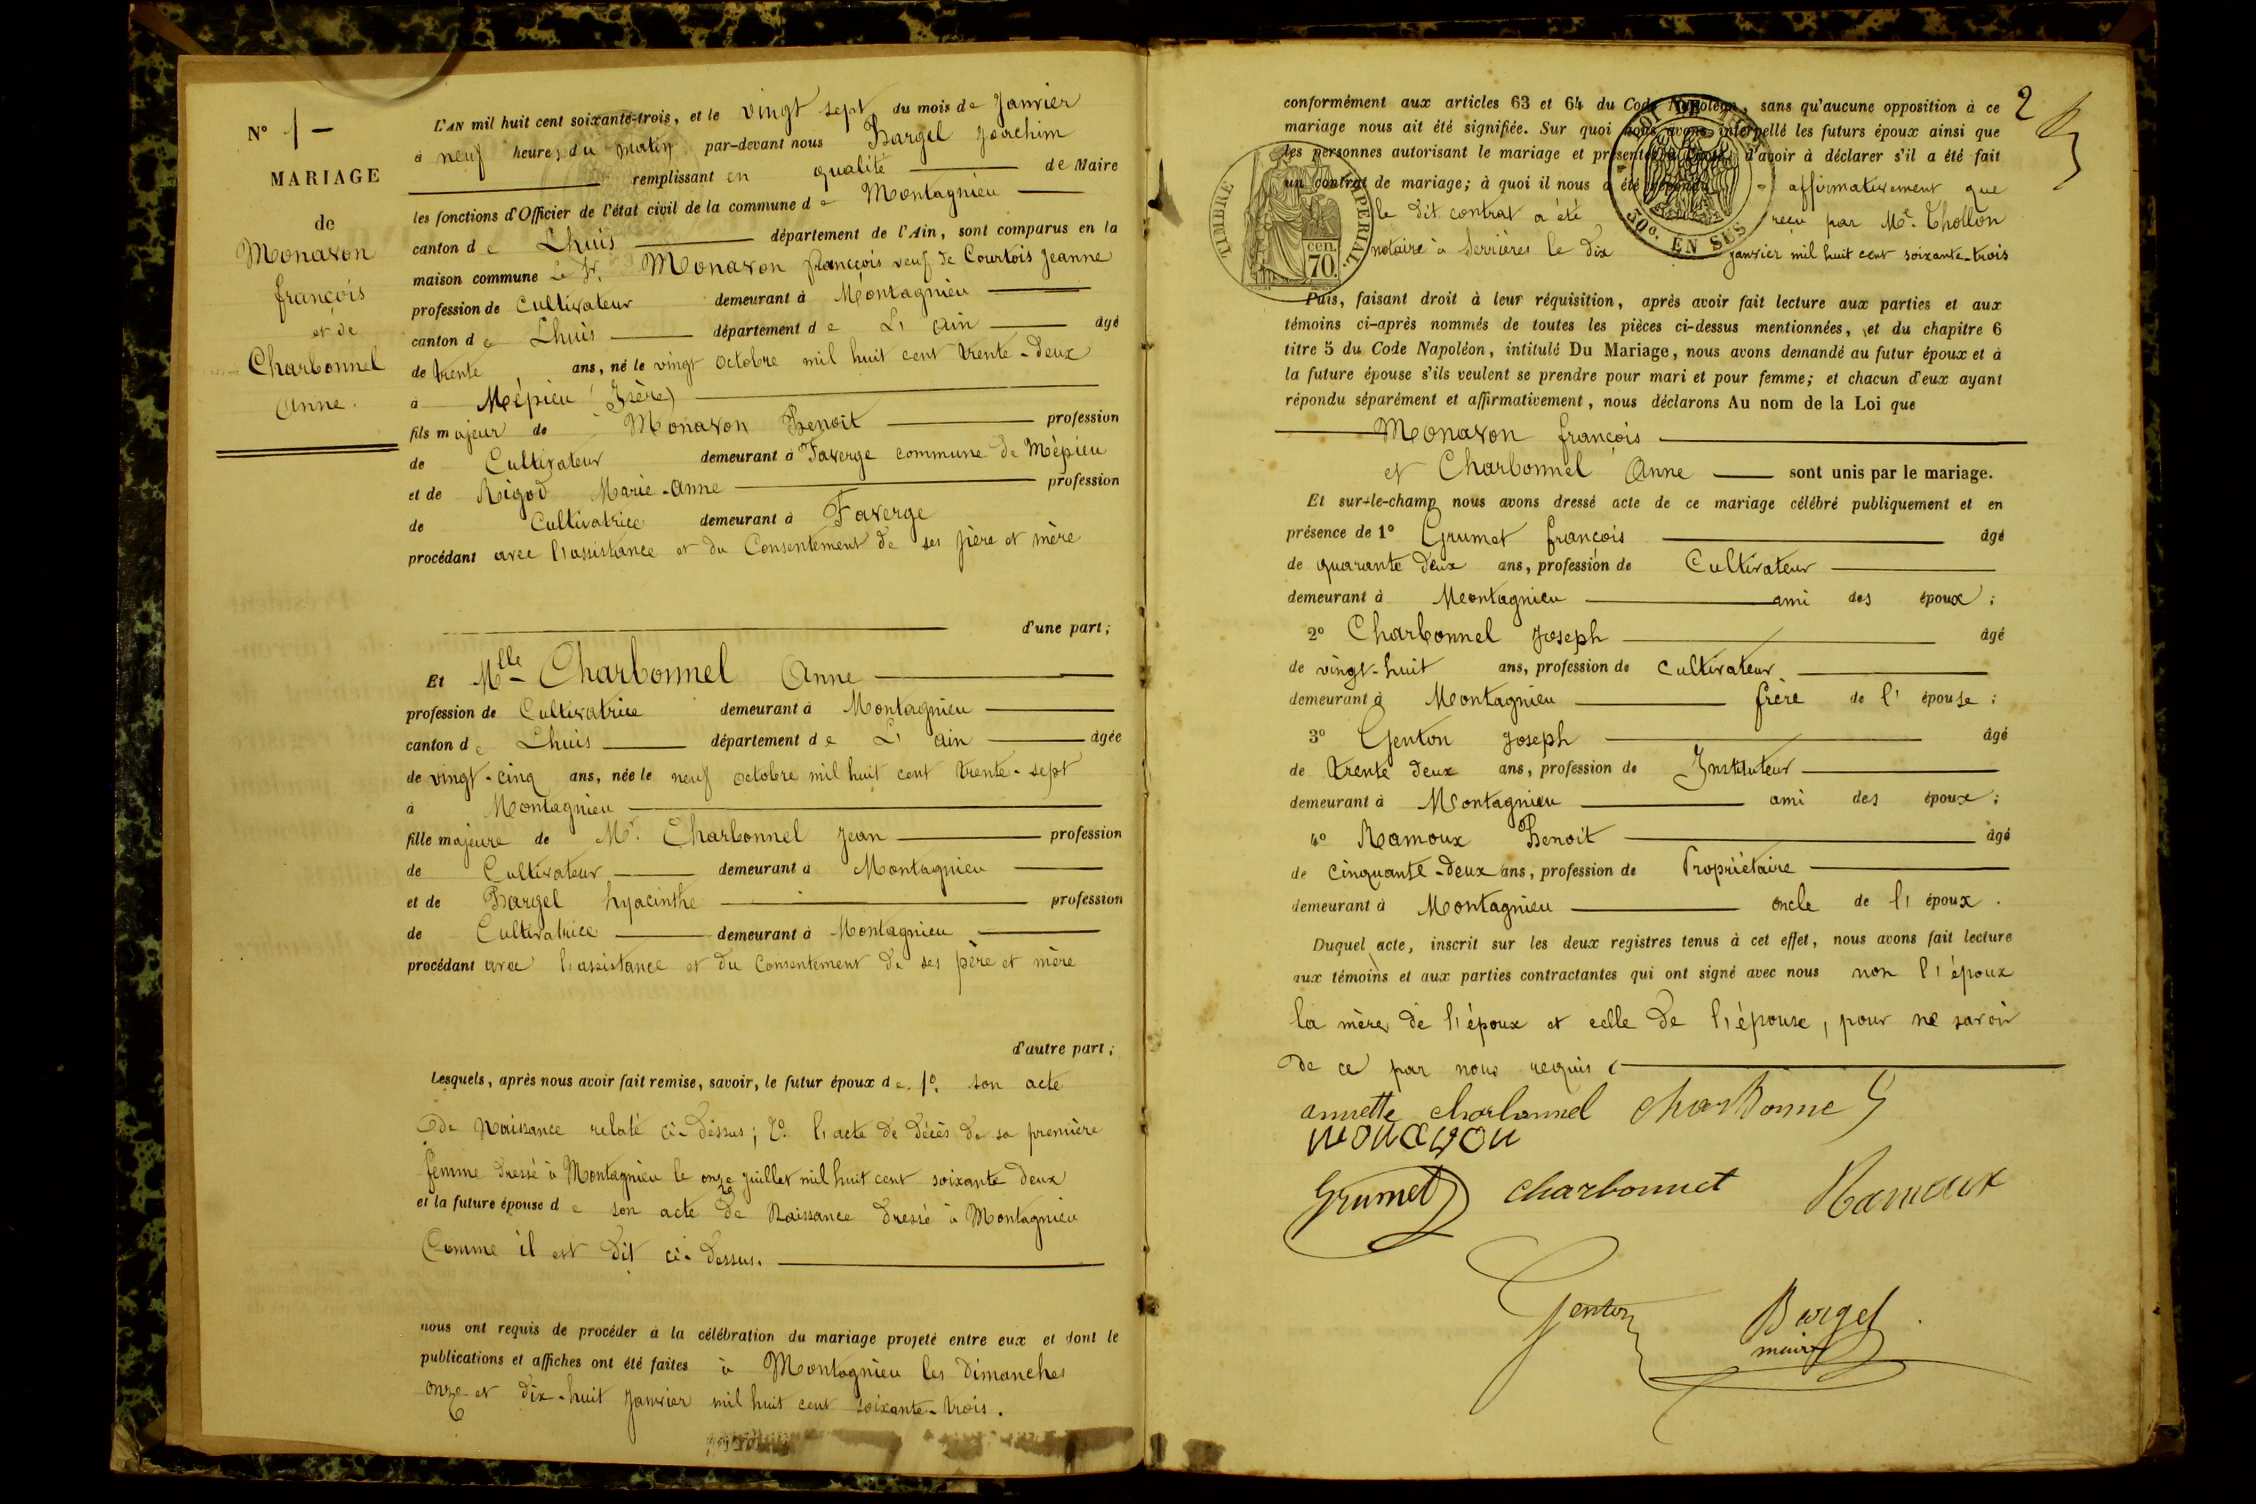 N° 1 -
MARIAGE
de
Monavon
françois
et de
Charbonnel
Anne.
L'AN mil huit cent soixante-trois, et le vingt sept du mois de Janvier
à neuf heures du matin par-devant nous Bargel Joachim
remplissant en qualité de Maire
les fonctions d'Officier de l'état civil de la commune de Montagnieu
canton de Lhuis département de l'Ain, sont comparus en la
maison commune Le Sr. Monavon françois veuf de Courtois Jeanne
profession de Cultivateur demeurant à Montagnieu
canton de Lhuis département de L'ain âgé
de trente ans, né le vingt octobre mil huit cent trente-deux
à Mépieu (Isère)
fils majeur de Monavon Benoit profession
de Cultivateur demeurant à Faverge commune de Mépieu
et de Rigod Marie-Anne profession
de Cultivatrice demeurant à Faverge
procédant avec l'assistance et du Consentement de ses père et mère
d'une part;
Et Mlle Charbonnel Anne
profession de Cultivatrice demeurant à Montagnieu
canton de Lhuis département de L'ain âgée
de vingt-cinq ans, née le neuf octobre mil huit cent trente-sept
à Montagnieu
fille majeure de Mr. Charbonnel Jean profession
de Cultivateur demeurant à Montagnieu
et de Bargel hyacinthe profession
de Cultivatrice demeurant à Montagnieu
procédant avec l'assistance et du Consentement de ses père et mère
d'autre part;
Lesquels, après nous avoir fait remise, savoir, le futur époux de 1°. son acte
de Naissance relaté ci-dessus; 2°. l'acte de décès de sa première
femme dressé à Montagnieu le onze juillet mil huit cent soixante deux
et la future épouse de son acte de Naissance dressé à Montagnieu
Comme il est dit ci-dessus.
nous ont requis de procéder à la célébration du mariage projeté entre eux et dont le
publications et affiches ont été faites à Montagnieu les dimanches
onze et dix-huit janvier mil huit cent soixante-trois.
2
conformément aux articles 63 et 64 du Code Napoléon, sans qu'aucune opposition à ce
mariage nous ait été signifiée. Sur quoi nous avons interpellé les futurs époux ainsi que
les personnes autorisant le mariage et présentes à l'acte, d'avoir à déclarer s'il a été fait
un contrat de mariage; à quoi il nous a été répondu affirmativement que
le dit contrat a été reçu par Me. Thollon
notaire à Serrières le dix janvier mil huit cent soixante-trois
TIMBRE IMPERIAL
cen. 70.
LOI DE
50c. EN SUS
Puis, faisant droit à leur réquisition, après avoir fait lecture aux parties et aux
témoins ci-après nommés de toutes les pièces ci-dessus mentionnées, et du chapitre 6
titre 5 du Code Napoléon, intitulé Du Mariage, nous avons demandé au futur époux et à
la future épouse s'ils veulent se prendre pour mari et pour femme; et chacun d'eux ayant
répondu séparément et affirmativement, nous déclarons Au nom de la Loi que
Monavon françois
et Charbonnel Anne sont unis par le mariage.
Et sur-le-champ nous avons dressé acte de ce mariage célébré publiquement et en
présence de 1° Grumet françois âgé
de quarante deux ans, profession de Cultivateur
demeurant à Montagnieu ami des époux;
2° Charbonnel Joseph âgé
de vingt-huit ans, profession de Cultivateur
demeurant à Montagnieu frère de l'épouse;
3° Genton Joseph âgé
de trente deux ans, profession de Instituteur
demeurant à Montagnieu ami des époux;
4° Ramoux Benoit âgé
de cinquante-deux ans, profession de Propriétaire
demeurant à Montagnieu oncle de l'époux.
Duquel acte, inscrit sur les deux registres tenus à cet effet, nous avons fait lecture
aux témoins et aux parties contractantes qui ont signé avec nous non l'époux
la mère de l'époux et celle de l'épouse, pour ne savoir
de ce par nous requis
annette charbonnel charbonnel
monavon
Grumet charbonnet Ramoux
Genton Bargel
maire